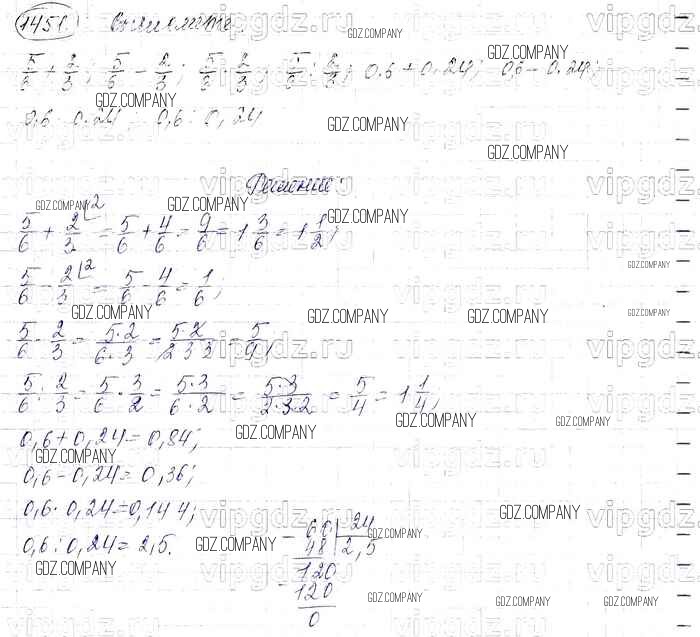 1451. Вычислите:
5/6 + 2/3; 5/6 - 2/3; 5/6 · 2/3; 5/6 : 2/3; 0.6 + 0.24; 0,6 - 0.24;
0,6 · 0.24; 0,6 : 0,24
Решение:
5/6 + 2/3 ⌊2 = 5/6 + 4/6 = 9/6 = 1 3/6 = 1 1/2;
5/6 - 2/3 ⌊2 = 5/6 - 4/6 = 1/6;
5/6 · 2/3 = 5·2/6·3 = 5·2/2·3·3 = 5/9;
5/6 : 2/3 = 5/6 · 3/2 = 5·3/6·2 = 5·3/2·3·2 = 5/4 = 1 1/4;
0,6 + 0,24 = 0,84;
0,6 - 0,24 = 0,36;
0,6 · 0,24 = 0,144;
0,6 : 0,24 = 2,5.
- 60 | 24
48 | 2,5
- 120
120
0
GDZ.COMPANY
vipgdz.ru